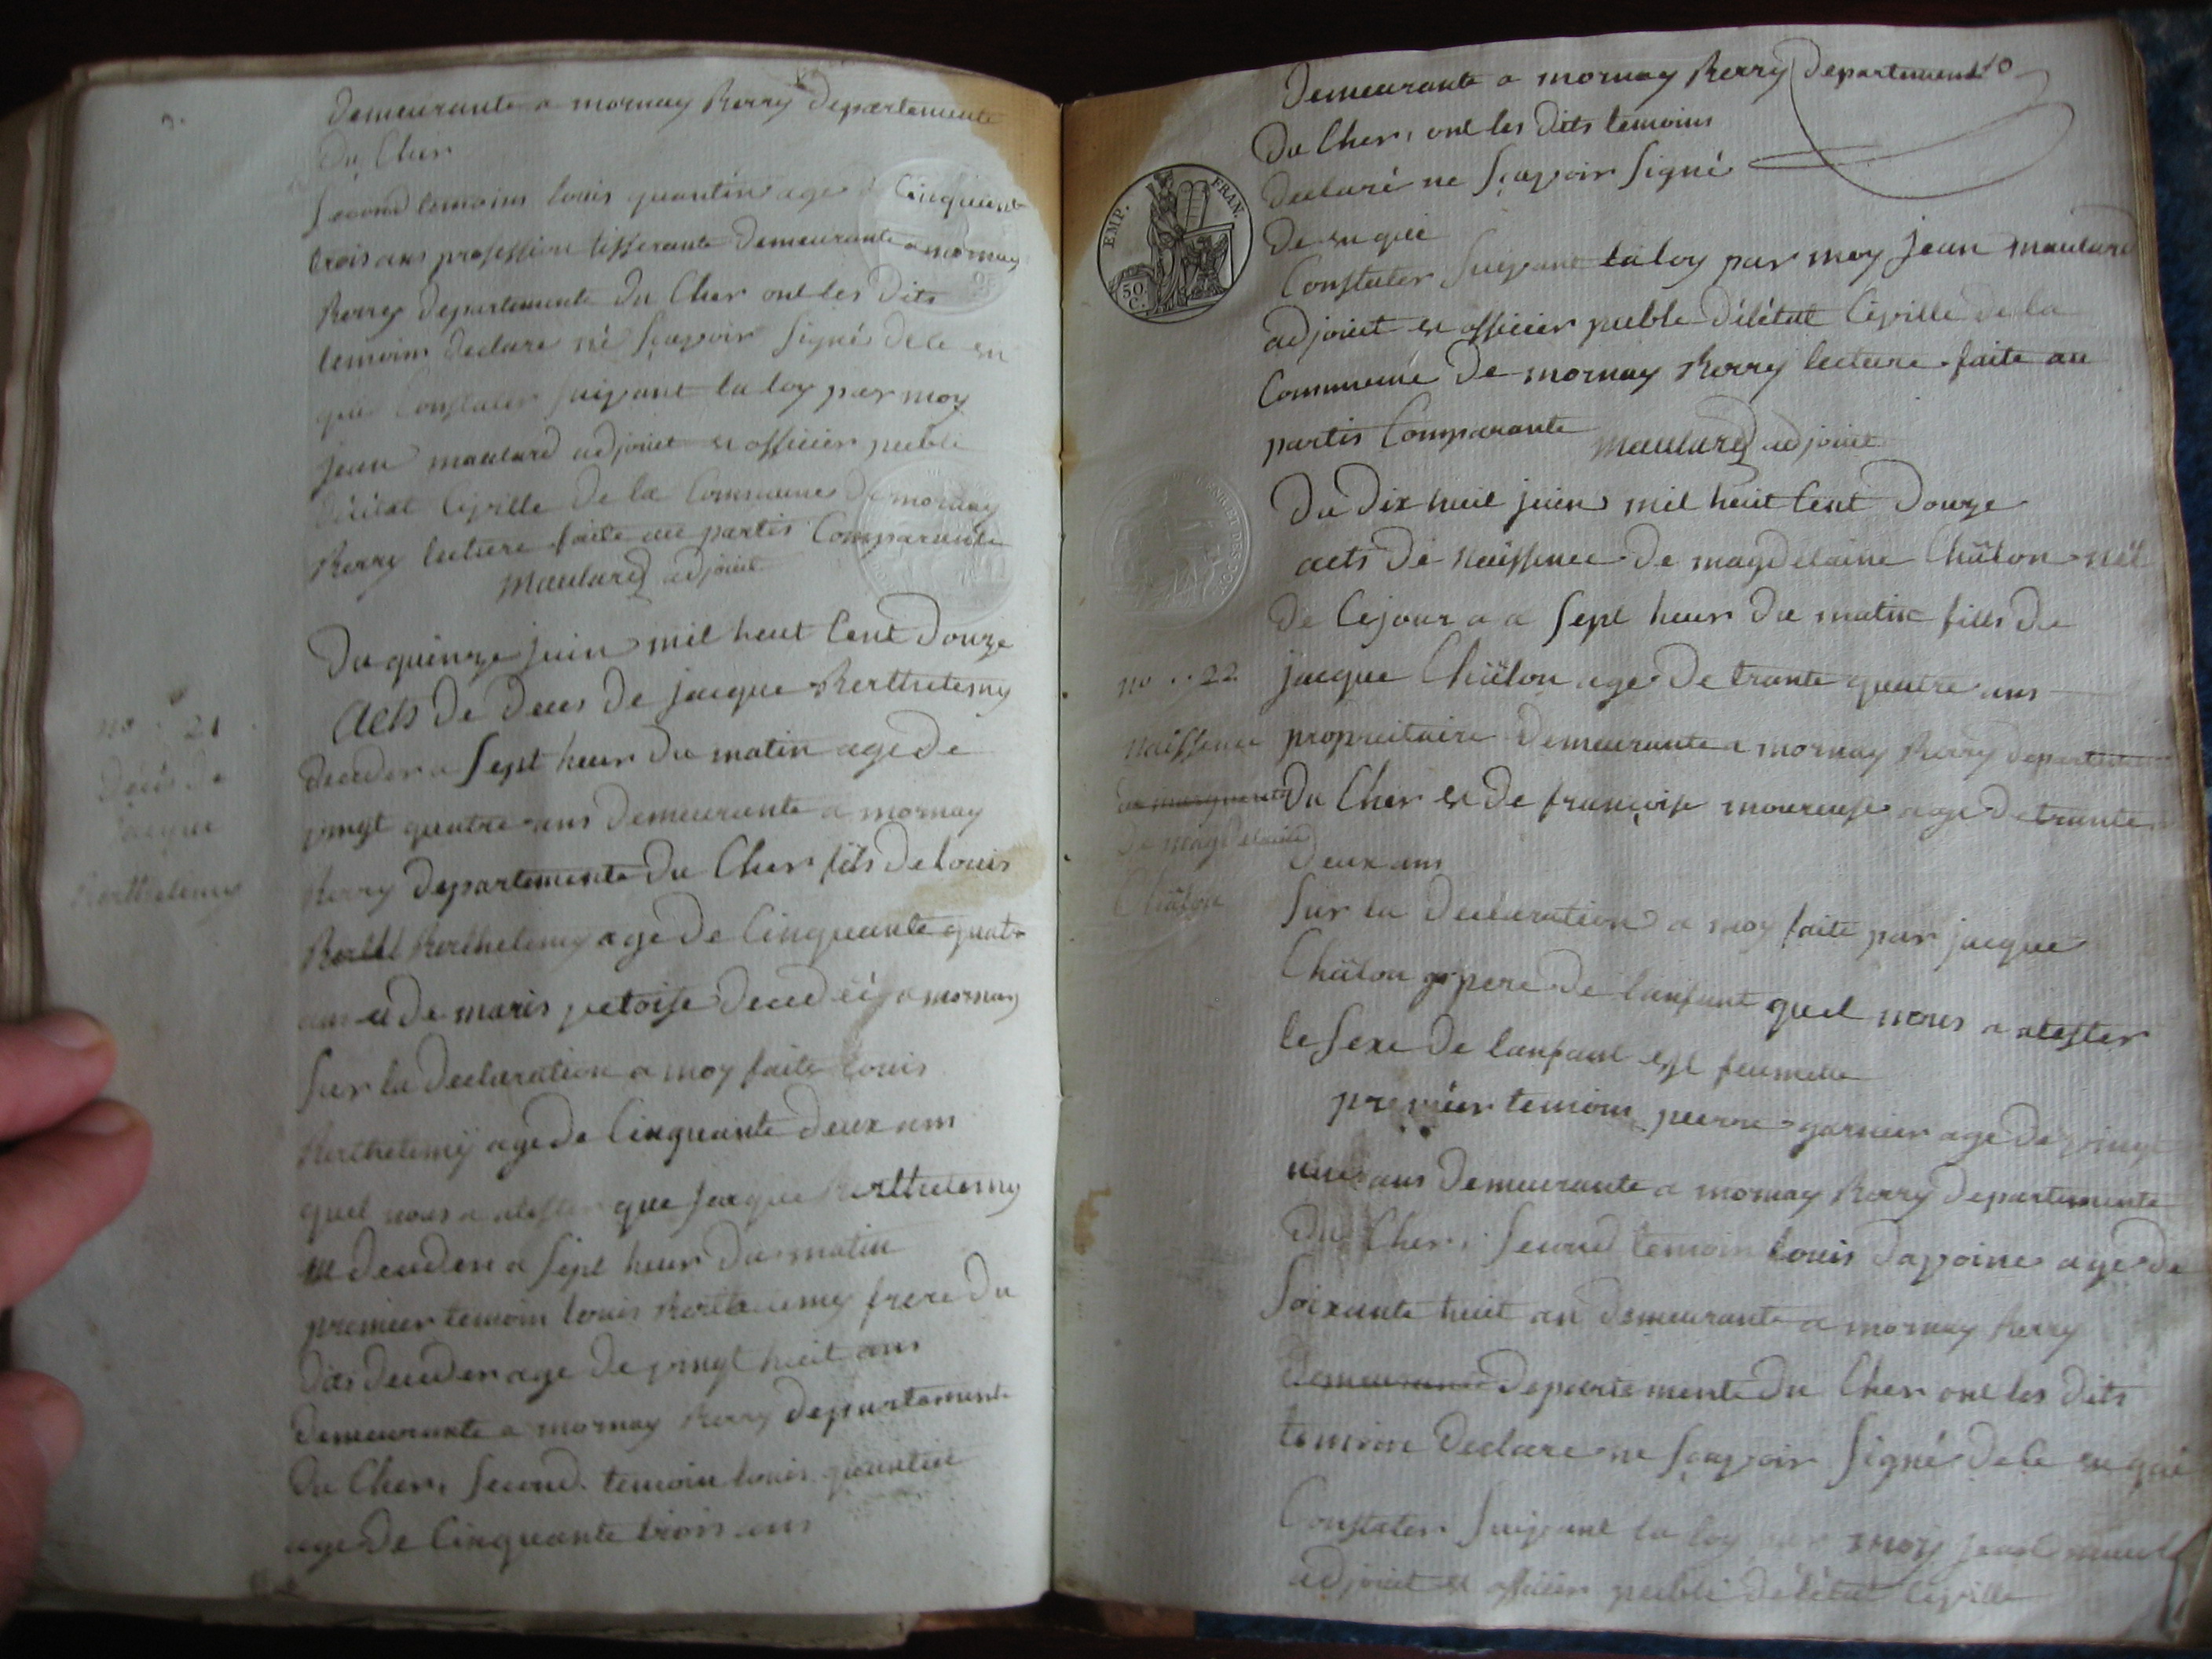 Demeurante a mornay Berry Departemente
Du Cher
Second temoins louis quantin age Cinquente
trois ans profession tisserante Demeurante a mornay
Berry Departemente Du Cher ont les Dits
temoins Declare né sçavoir Signé Dele en
qui Constater suivant la loy par moy
jean maulard adjoint et officier publi
Délétat Civille De la Commune De mornay
Berry lecture faite au partis Comparante
Maulard adjoint
Du quinze juin mil heut Cent Douze
Acts De Deces De jacque Berthelemy
no 21
Decés De
jacque
Berthelemy
Deceder a Sept heur Du matin age De
vingt quatre ans Demeurante a mornay
Berry Departemente Du Cher fils De louis
Berthelemy age De Cinquante quatre
ans et De maris petoise Decedéé a mornay
Sur la Declaration a moy faite louis
Berthelemy age De Cinquante Deux ans
quel nous a atester que Jacque Berthelemy
Deceder a Sept heur Du matin
premier temoin louis Berthelemy frere Du
Dis Deceder age De vingt huit ans
Demeurante a mornay Berry Departemente
Du Cher, Second temoin louis quantin
age De Cinquante trois ans
Demeurante a mornay Berry Departement 10
Du Cher, ont les Dits temoins
Declaré ne Sçavoir Signé
De en qui
EMP. FRAN.
50 C.
Constater Suivant la loy par moy jean maulard
adjoint et officier puble Délétat Civille De la
Commune De mornay Berry lecture faite au
partis Comparante
Maulard adjoint
Du Dix huit juin mil huit Cent Douze
acts De Naissence De magdelaine Châlon néé
De Cejour a a Sept heur Du matin fills De
no 22
jacque Châlon age De trante quatre ans
Naissence
De magdelaine
Châlon
propreitaire Demeurante a mornay Berry Departemente
Du Cher et De françoise moureuse age De trante
Deux ans
Sur la Declaration a moy faite par jacque
Châlon pere De lanfant quel nous a atester
le Sexe De lanfant est feumelle
premier temoin pierre garnier age De vingt
ans Demeurante a mornay Berry Departemente
Du Cher, Second temoin louis Dapoine age De
Soixante huit an Demeurante a mornay Berry
Demeurante Departemente Du Cher ont les Dits
temoin Declare ne Sçavoir Signé Dele en qui
Constater Suivant la loy par moy jean maul
adjoint et officier publi Délétat Civille